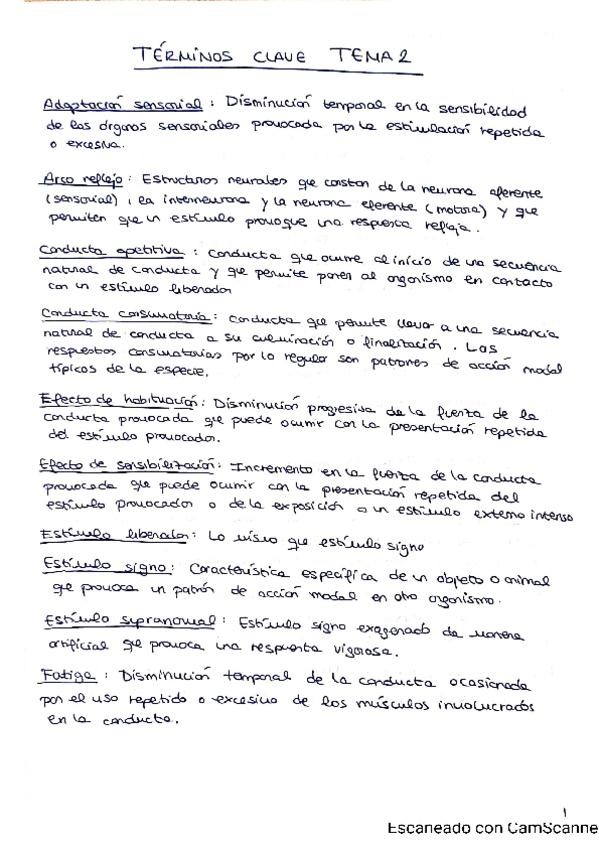 TÉRMINOS CLAVE TEMA 2
Adaptación sensorial : Disminución temporal en la sensibilidad
de los órganos sensoriales provocada por la estimulación repetida
o excesiva.
Arco reflejo : Estructuras neurales que constan de la neurona aferente
(sensorial) , la interneurona y la neurona eferente (motora) y que
permiten que un estímulo provoque una respuesta refleja.
Conducta apetitiva : conducta que ocurre al inicio de una secuencia
natural de conducta y que permite poner al organismo en contacto
con un estímulo liberador
Conducta consumatoria : conducta que permite llevar a una secuencia
natural de conducta a su culminación o finalización . Las
respuestas consumatorias por lo regular son patrones de acción modal
típicos de la especie.
Efecto de habituación : Disminución progresiva de la fuerza de la
conducta provocada que puede ocurrir con la presentación repetida
del estímulo provocador.
Efecto de sensibilización : Incremento en la fuerza de la conducta
provocada que puede ocurrir con la presentación repetida del
estímulo provocador o de la exposición a un estímulo externo intenso
Estímulo liberador : Lo mismo que estímulo signo
Estímulo signo : Característica específica de un objeto o animal
que provoca un patrón de acción modal en otro organismo.
Estímulo supranormal : Estímulo signo exagerado de manera
artificial que provoca una respuesta vigorosa.
Fatiga : Disminución temporal de la conducta ocasionada
por el uso repetido o excesivo de los músculos involucrados
en la conducta.
1
Escaneado con CamScanne